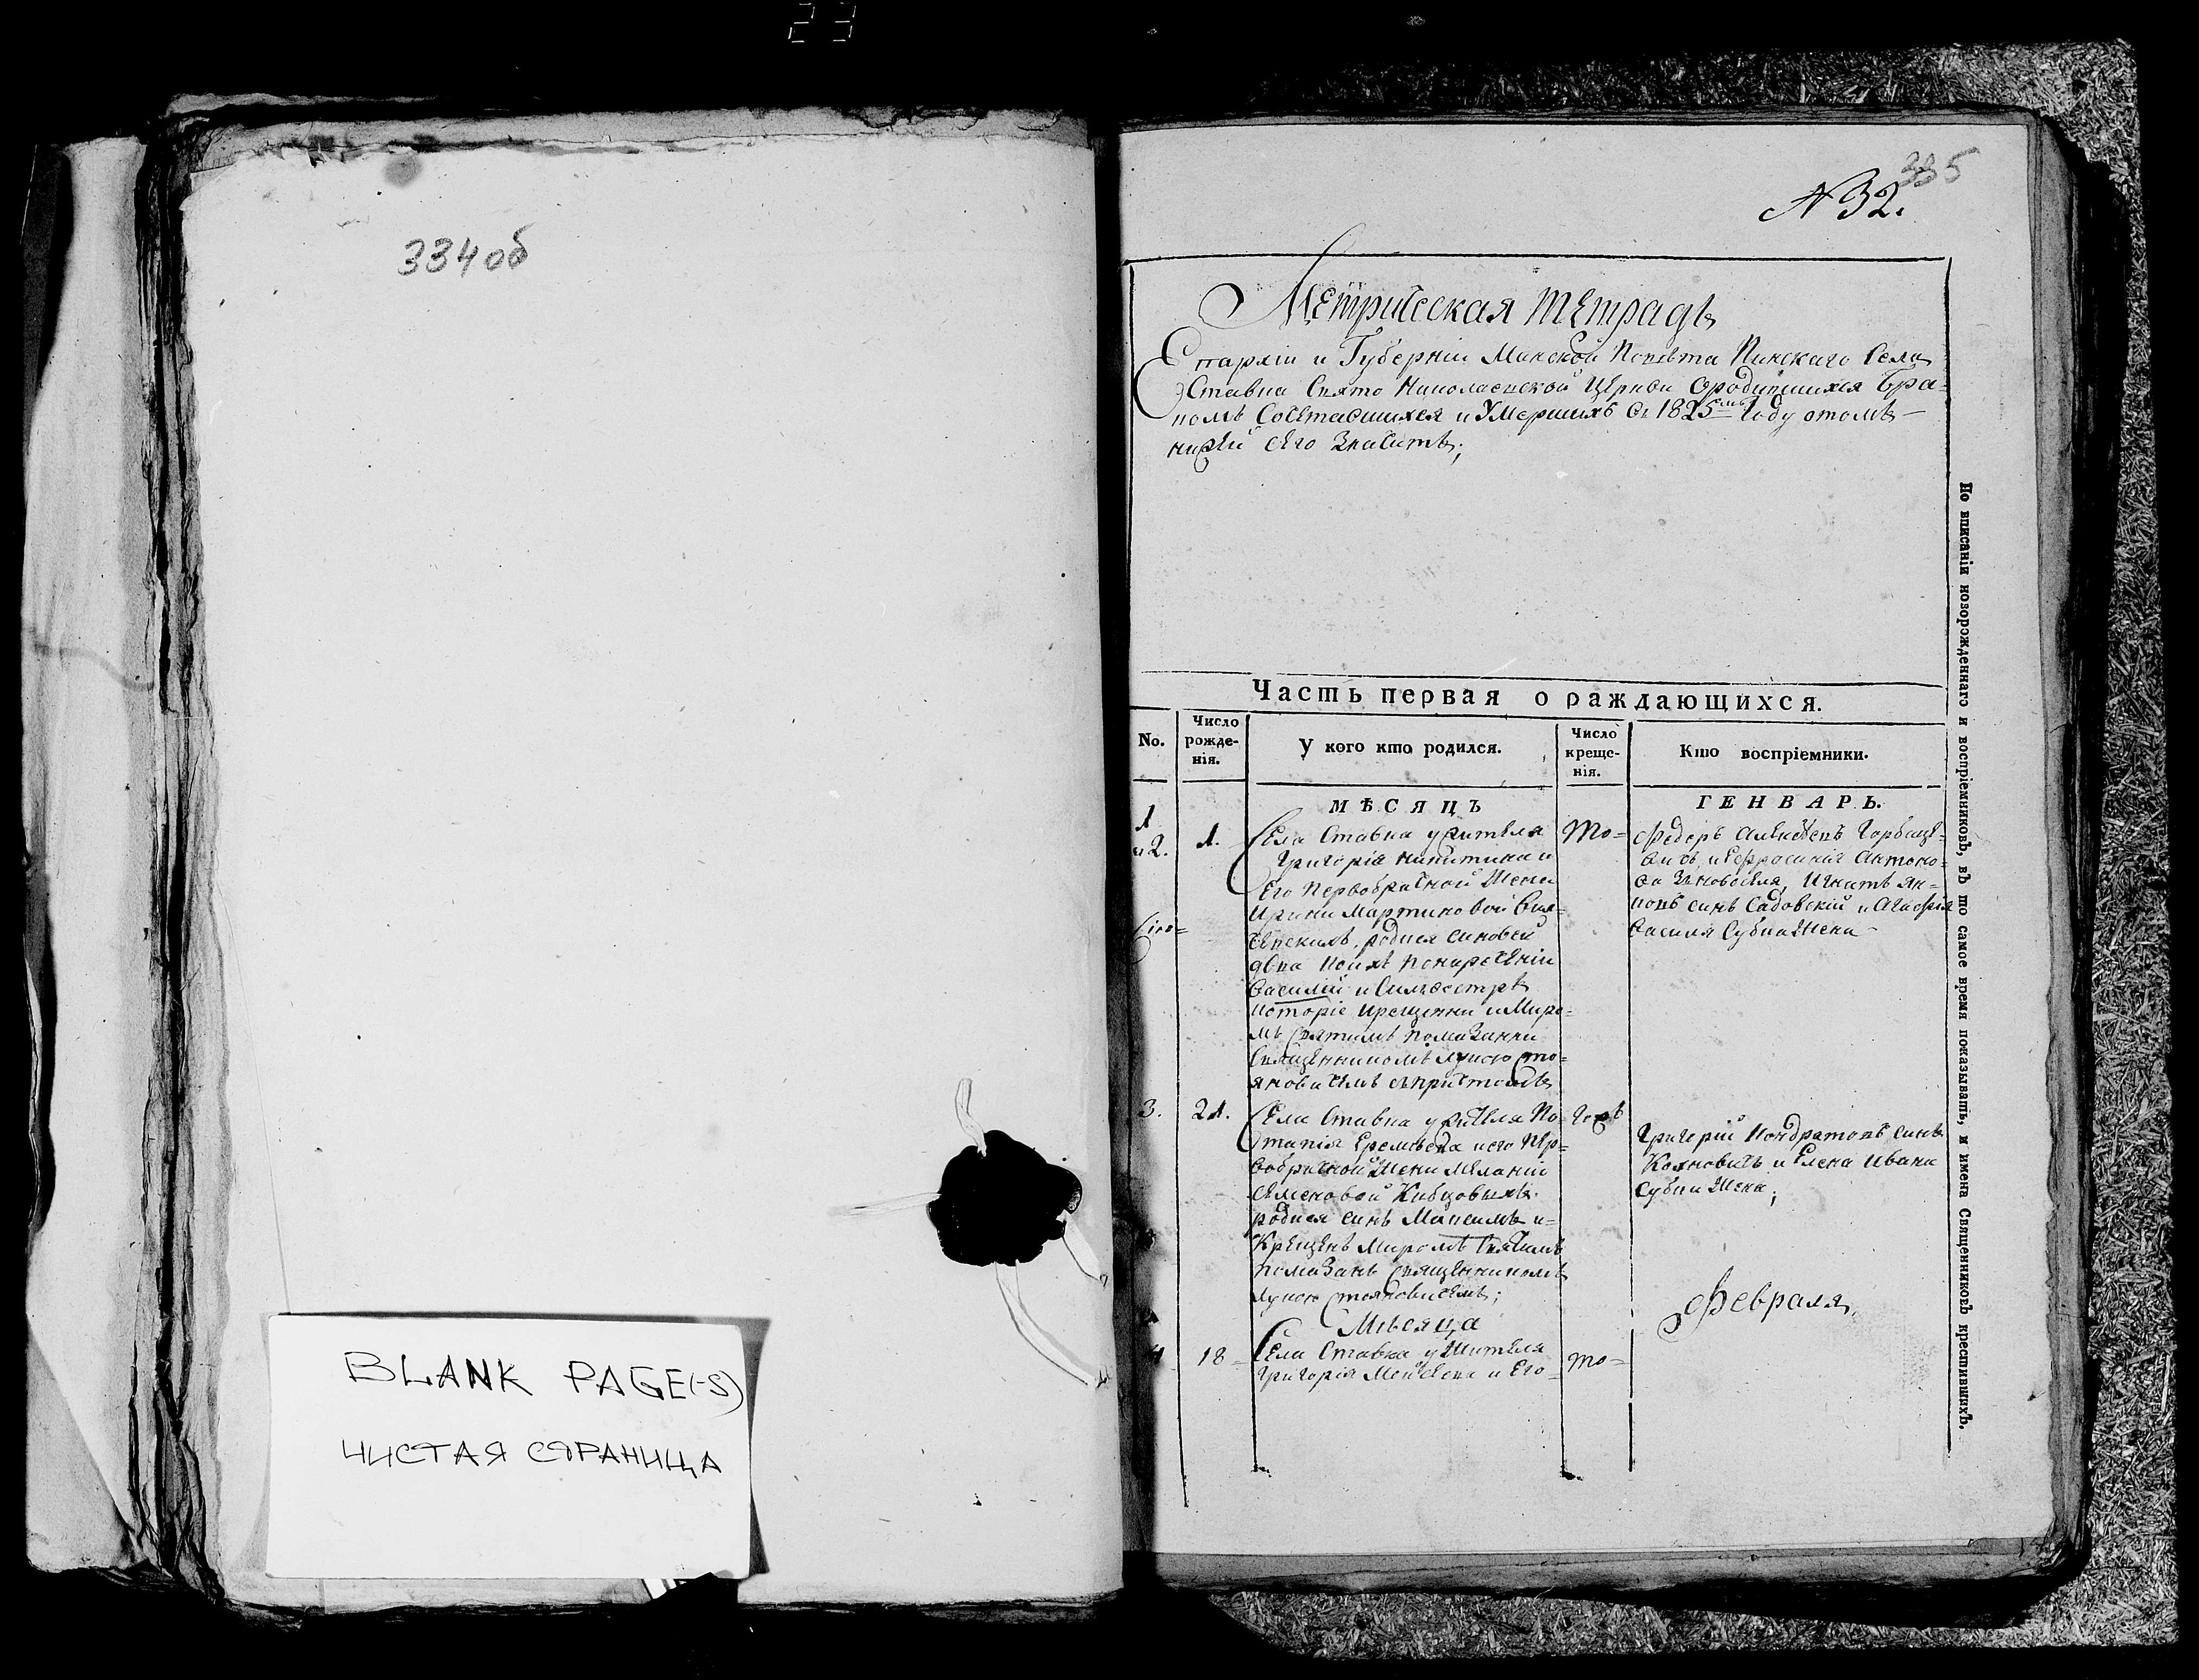 23
334 об
BLANK PAGE(-S)
ЧИСТАЯ СТРАНИЦА
335
N 32.
Метрическая тетрадь
Епархіи и Губерніи Минской Повѣта Пинскаго Села
Ставка Свято Николаевской Церкви о родившихся бра-
комъ Сочетавшихся и Умершихъ въ 1825мъ Году
его значитъ;
Часть первая о раждающихся.
No.
Число рожде-нія.
У кого кто родился.
Число креще-нія.
Кто воспріемники.
МѢСЯЦЪ
ГЕНВАРЬ.
1
и 2.
1.
Села Ставка у жителя
Григорія Никитина и
Его Первобрачной Жени
Ирини Мартиновой
родися синовей
два
Василій и Силвестръ
крещенни и Миро-
мъ Святимъ помазанни
Священникомъ Лукою Сто-
яновичемъ съ причтомъ
То-
Федоръ Алексѣевъ Горбаце-
вичъ и Ефросинія Антоно-
ва Игнатъ Ян-
ковъ синъ Садовскій и Агафія
Василя жена
3.
21.
Села Ставка у жителя По-
тапія Еремѣева и его пер-
вобрачной Жени Меланіи
Семеновой Кивцовыхъ
родися синъ Максимъ и-
Крещенъ Миромъ Святимъ
помазанъ Священникомъ
Лукою Стояновичемъ;
Григорій Кондратовъ синъ
Кояновичъ и Елена Ивана
жена;
Мѣсяца
Февраля
4
18
Села Ставка у Жителя
Григорія и Его
то-
По вписаніи новорожденнаго и воспріемниковъ, въ то самое время показывать, и имена Священниковъ крестившихъ.